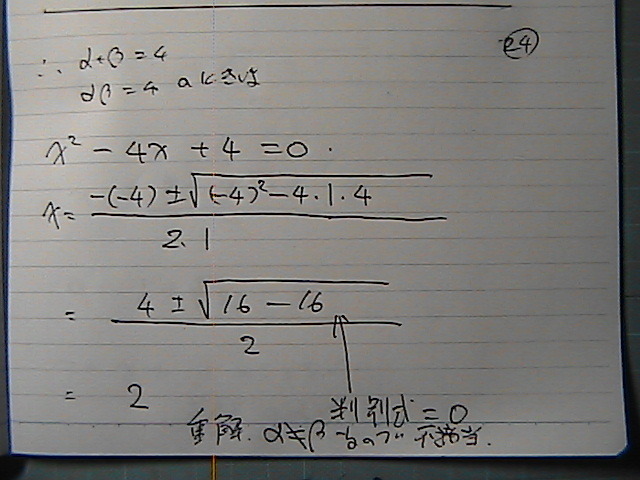 24
∴ α+β=4
αβ=4 のときは
x² − 4x + 4 = 0.
x = (−(−4) ± √((−4)² − 4・1・4)) / 2.1
= (4 ± √(16 − 16)) / 2
= 2
判別式 = 0
重解. α≠β なので 不適当.